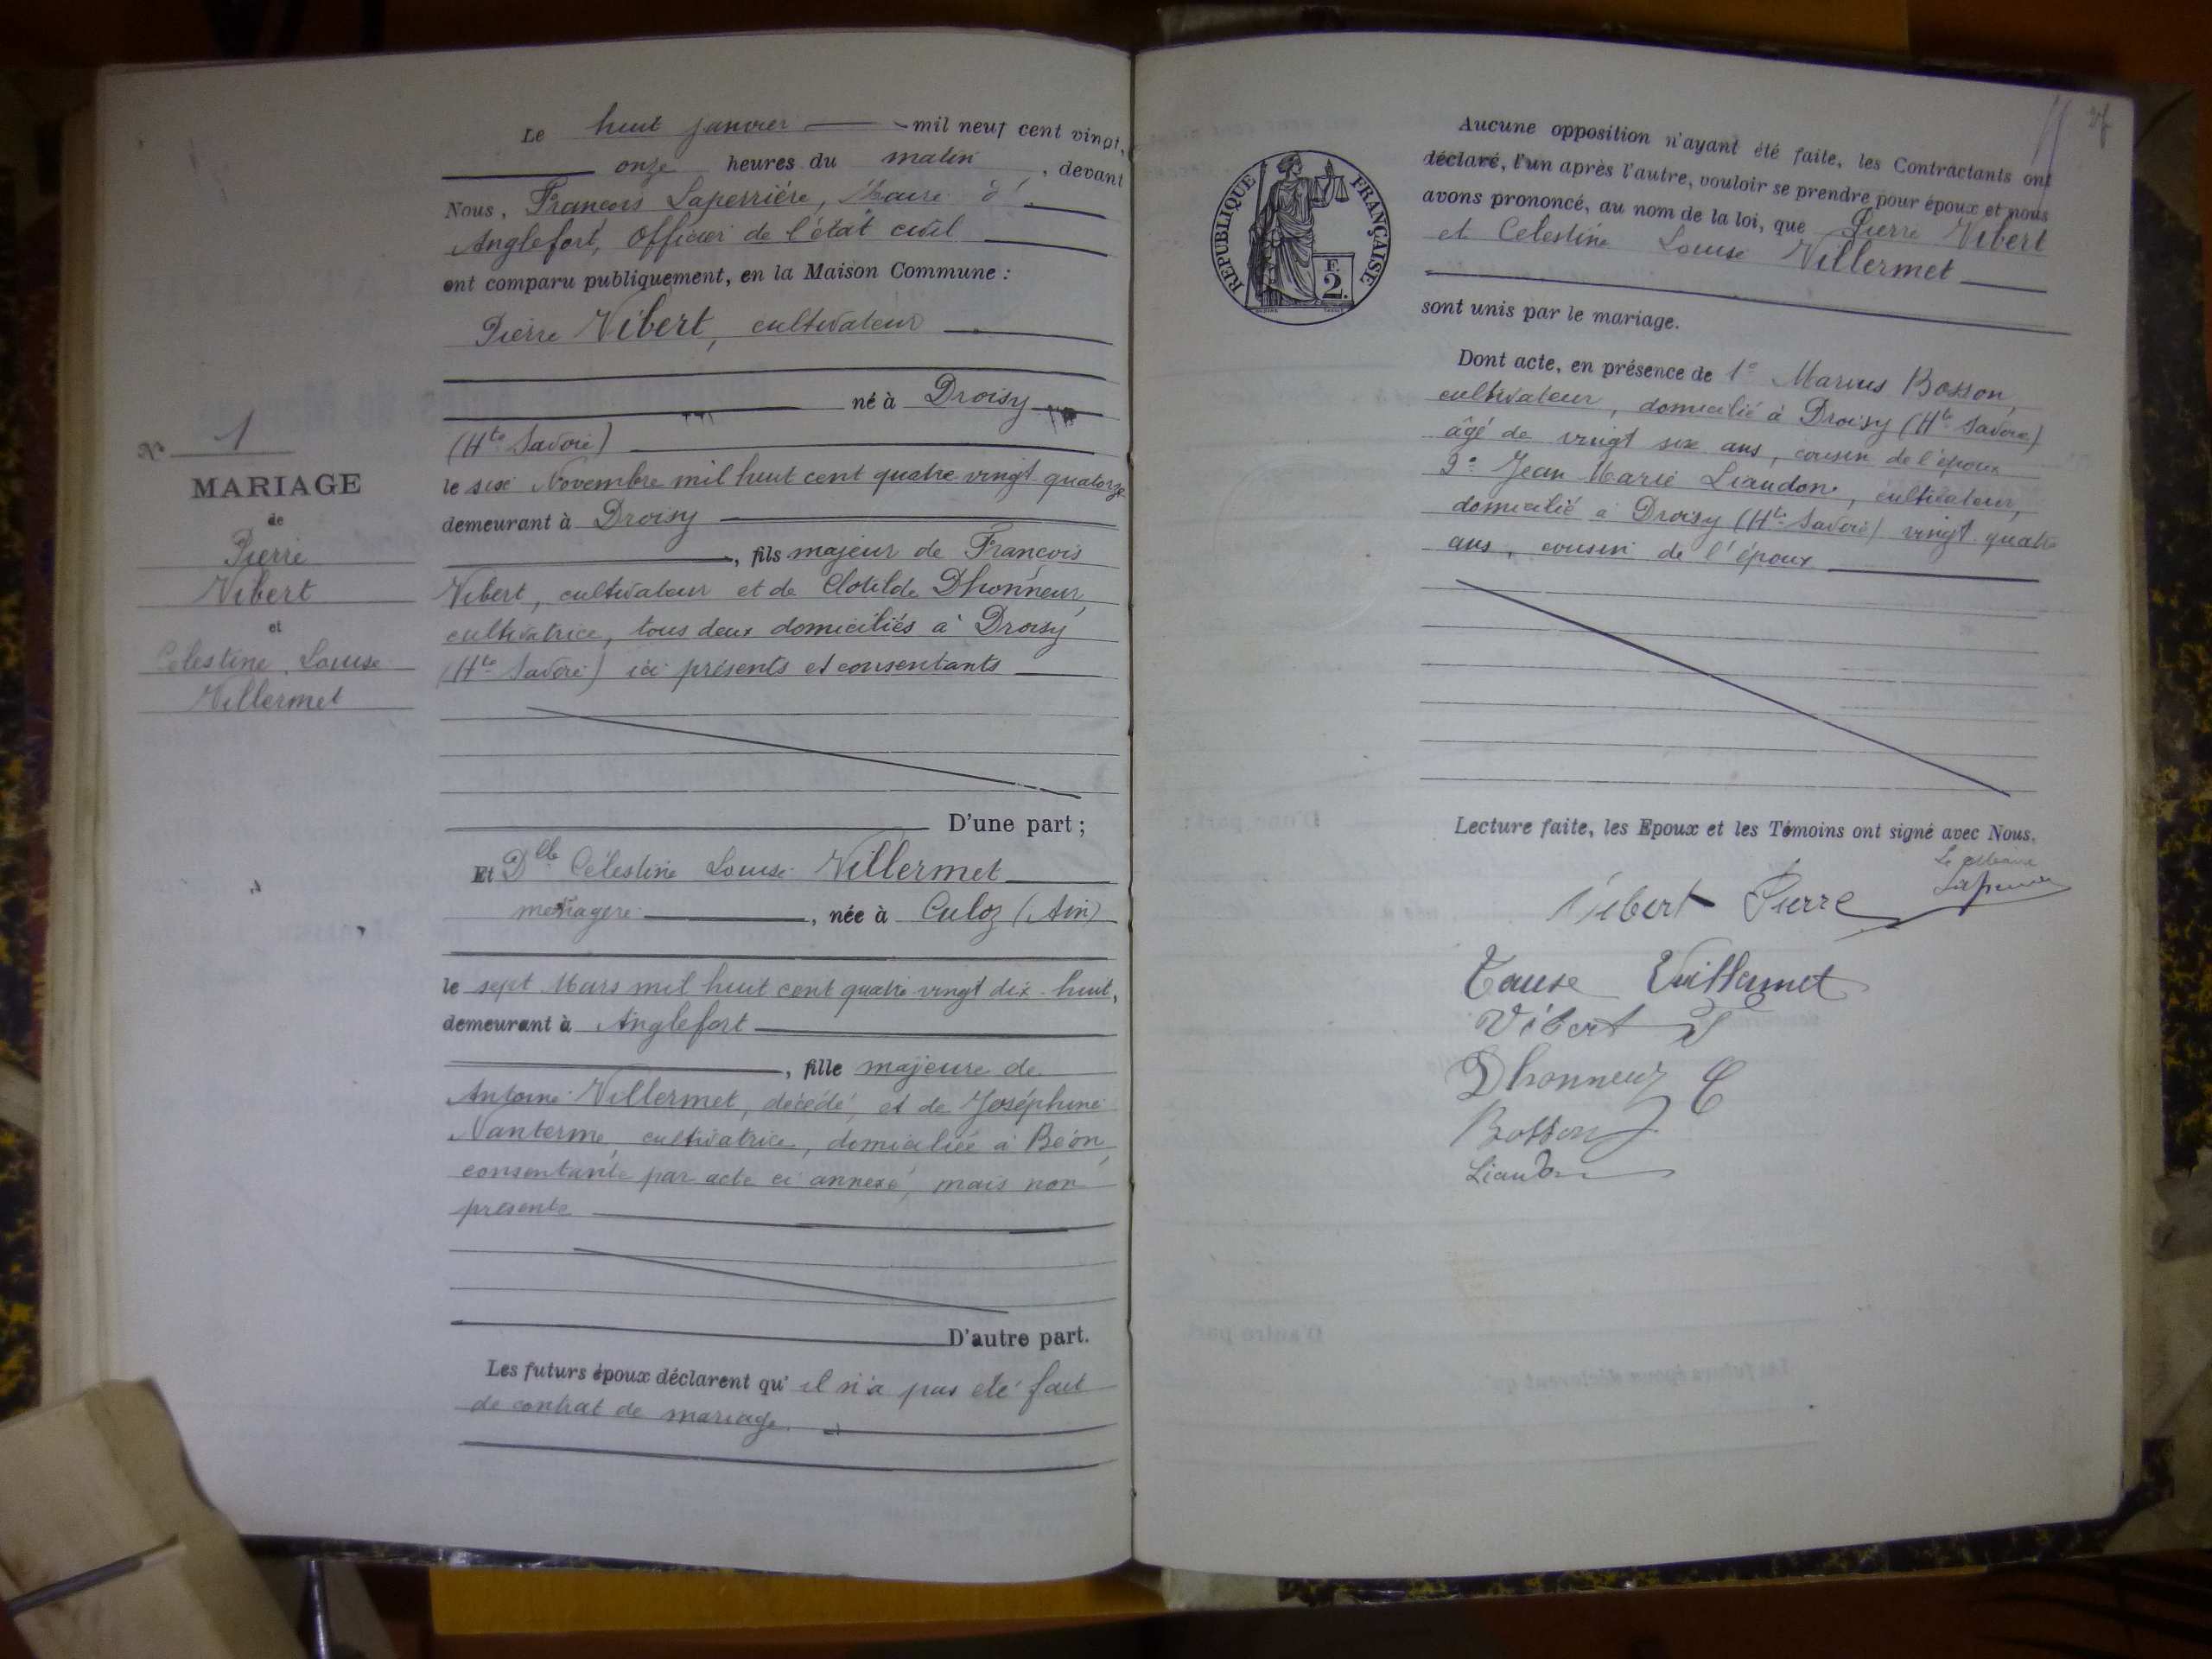 Le huit janvier mil neuf cent vingt,
onze heures du matin, devant
Nous, François Laperrière, Maire d'
Anglefort, Officier de l'état civil
ont comparu publiquement, en la Maison Commune :
Pierre Vibert, cultivateur
né à Droisy
(Hte Savoie)
le six Novembre mil huit cent quatre vingt quatorze
demeurant à Droisy
, fils majeur de François
Vibert, cultivateur et de Clotilde Dhonneur,
cultivatrice, tous deux domiciliés à Droisy
(Hte Savoie) ici présents et consentants
D'une part ;
Et Dlle Célestine Louise Villermet
ménagère, née à Culoz (Ain)
le sept Mars mil huit cent quatre vingt dix-huit,
demeurant à Anglefort
, fille majeure de
Antoine Villermet, décédé, et de Joséphine
Nanterme, cultivatrice, domiciliée à Béon,
consentante par acte ci annexé, mais non
présente
D'autre part.
Les futurs époux déclarent qu'il n'a pas été fait
de contrat de mariage.
No 1
MARIAGE
de
Pierre
Vibert
et
Célestine Louise
Villermet
RÉPUBLIQUE FRANÇAISE
F.
2.
Aucune opposition n'ayant été faite, les Contractants ont
déclaré, l'un après l'autre, vouloir se prendre pour époux et nous
avons prononcé, au nom de la loi, que Pierre Vibert
et Celestine Louise Villermet
sont unis par le mariage.
Dont acte, en présence de 1° Marius Bosson,
cultivateur, domicilié à Droisy (Hte Savoie)
âgé de vingt six ans, cousin de l'époux
2° Jean Marie Liaudon, cultivateur,
domicilié à Droisy (Hte Savoie) vingt quatre
ans, cousin de l'époux
Lecture faite, les Epoux et les Témoins ont signé avec Nous.
Le Maire
Vibert Pierre
Vuillermet
Vibert F
Dhonneur C
Bosson
Liaudon